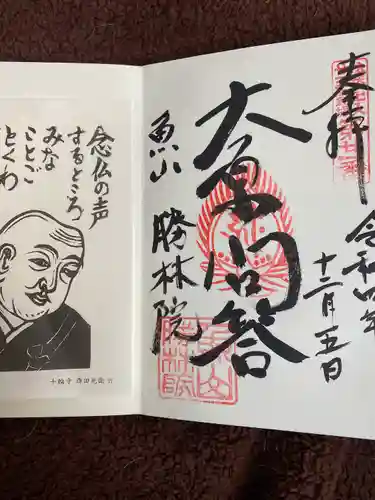 奉拝
令和四年
十二月五日
大原問答
魚山
勝林院
念仏の声
するところ
みな
ことご
とくわ